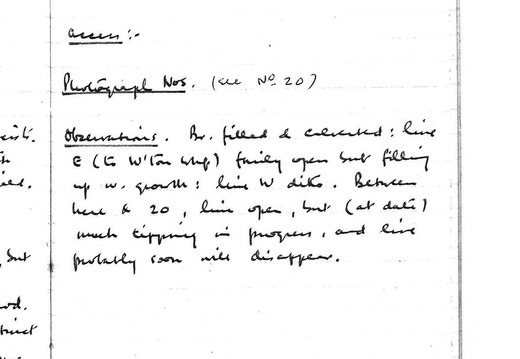 Access :-
Photograph Nos. (see No 20)
Observations. Br. filled & culverted: line
E (to W'ton Whf) fairly open but filling
up w. growth: line W ditto. Between
here & 20, line open, but (at date)
much tipping in progress, and line
probably soon will disappear.
but